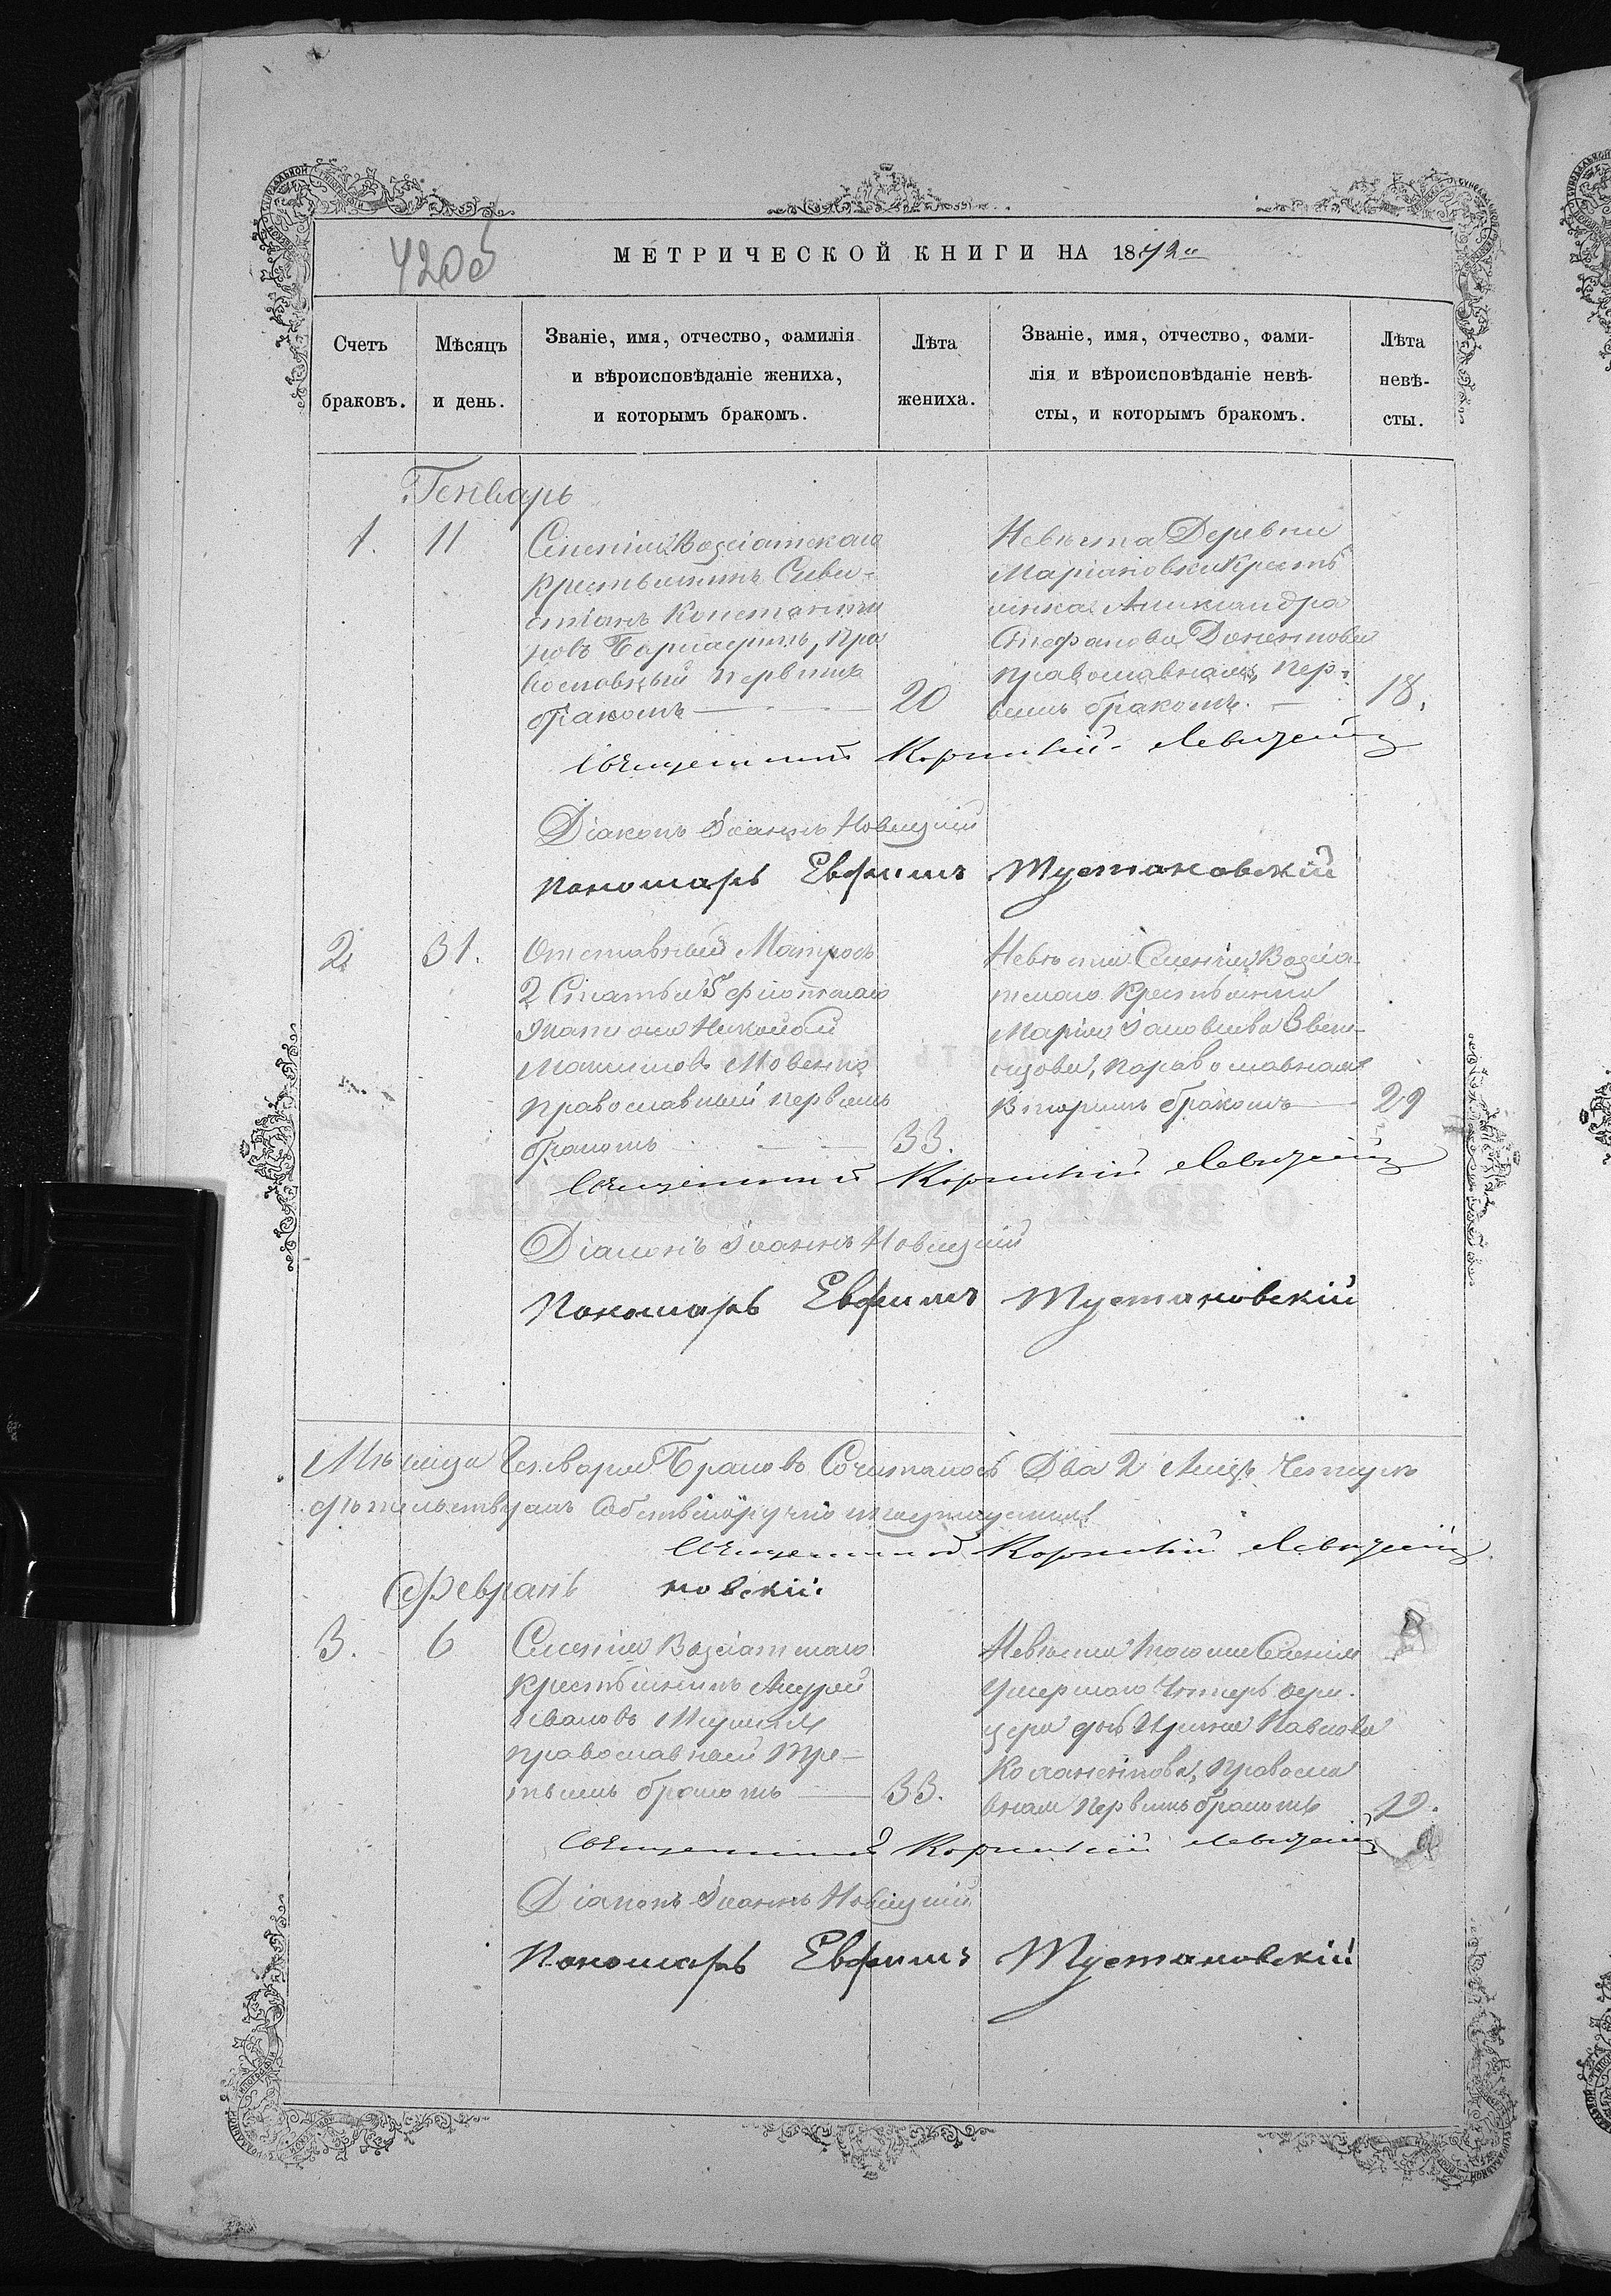 420об
МЕТРИЧЕСКОЙ КНИГИ НА 1872й
Счетъ браковъ.
Мѣсяцъ и день.
Званіе, имя, отчество, фамилія и вѣроисповѣданіе жениха, и которымъ бракомъ.
Лѣта жениха.
Званіе, имя, отчество, фами-
лія и вѣроисповѣданіе невѣ-
сты, и которымъ бракомъ.
Лѣта невѣ-
сты.
Генварь
1. 11
Селенія Возсіатскаго
крестьянинъ Сева-
стіанъ Константи
новъ пра
вославный первымъ
бракомъ 20
Невѣста Деревни
Маріановки Крестья
нка Александра
Стефанова
православная, пер-
вымъ бракомъ. 18.
Священникъ Корнилій Левицкій
Діаконъ Іоаннъ Новицкій
Пономарь Евфимъ Тустановскій
2. 31.
Отставный Матросъ
2 Статьи 5 флотскаго
Экипажа Николай
православный первымъ
бракомъ 33.
Невѣста Селенія Возсіа
тскаго Крестьянка
Марія
православная
Вторымъ бракомъ 29
Священникъ Корнилій Левицкій
Діаконъ Іоаннъ Новицкій
Пономарь Евфимъ Тустановскій
Мѣсяца Генваря Браковъ Сочиталось Два 2
Священникъ Корнилій Левицкій
новскій.
Февраль
3. 6
Селенія Возсіатскаго
крестьянинъ Андрей
Ивановъ
православный тре-
тьимъ бракомъ 33.
Невѣста тогоже Селенія
умершаго Унтеръ офи-
цера дочь Ирина Павлова
правосла
вная первымъ бракомъ
Священникъ Корнилій Левицкій
Діаконъ Іоаннъ Новицкій
Пономарь Евфимъ Тустановскій